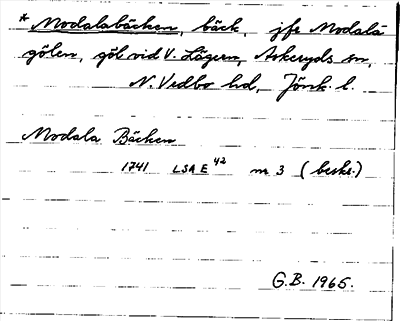 * Modalabäcken, bäck, jfr Modala
gölen, göl vid V. Lägern, Askeryds sn,
N. Vedbo hd, Jönk. l.
Modala Bäcken
1741 LSA E 42 nr 3 (beskr.)
G.B. 1965.